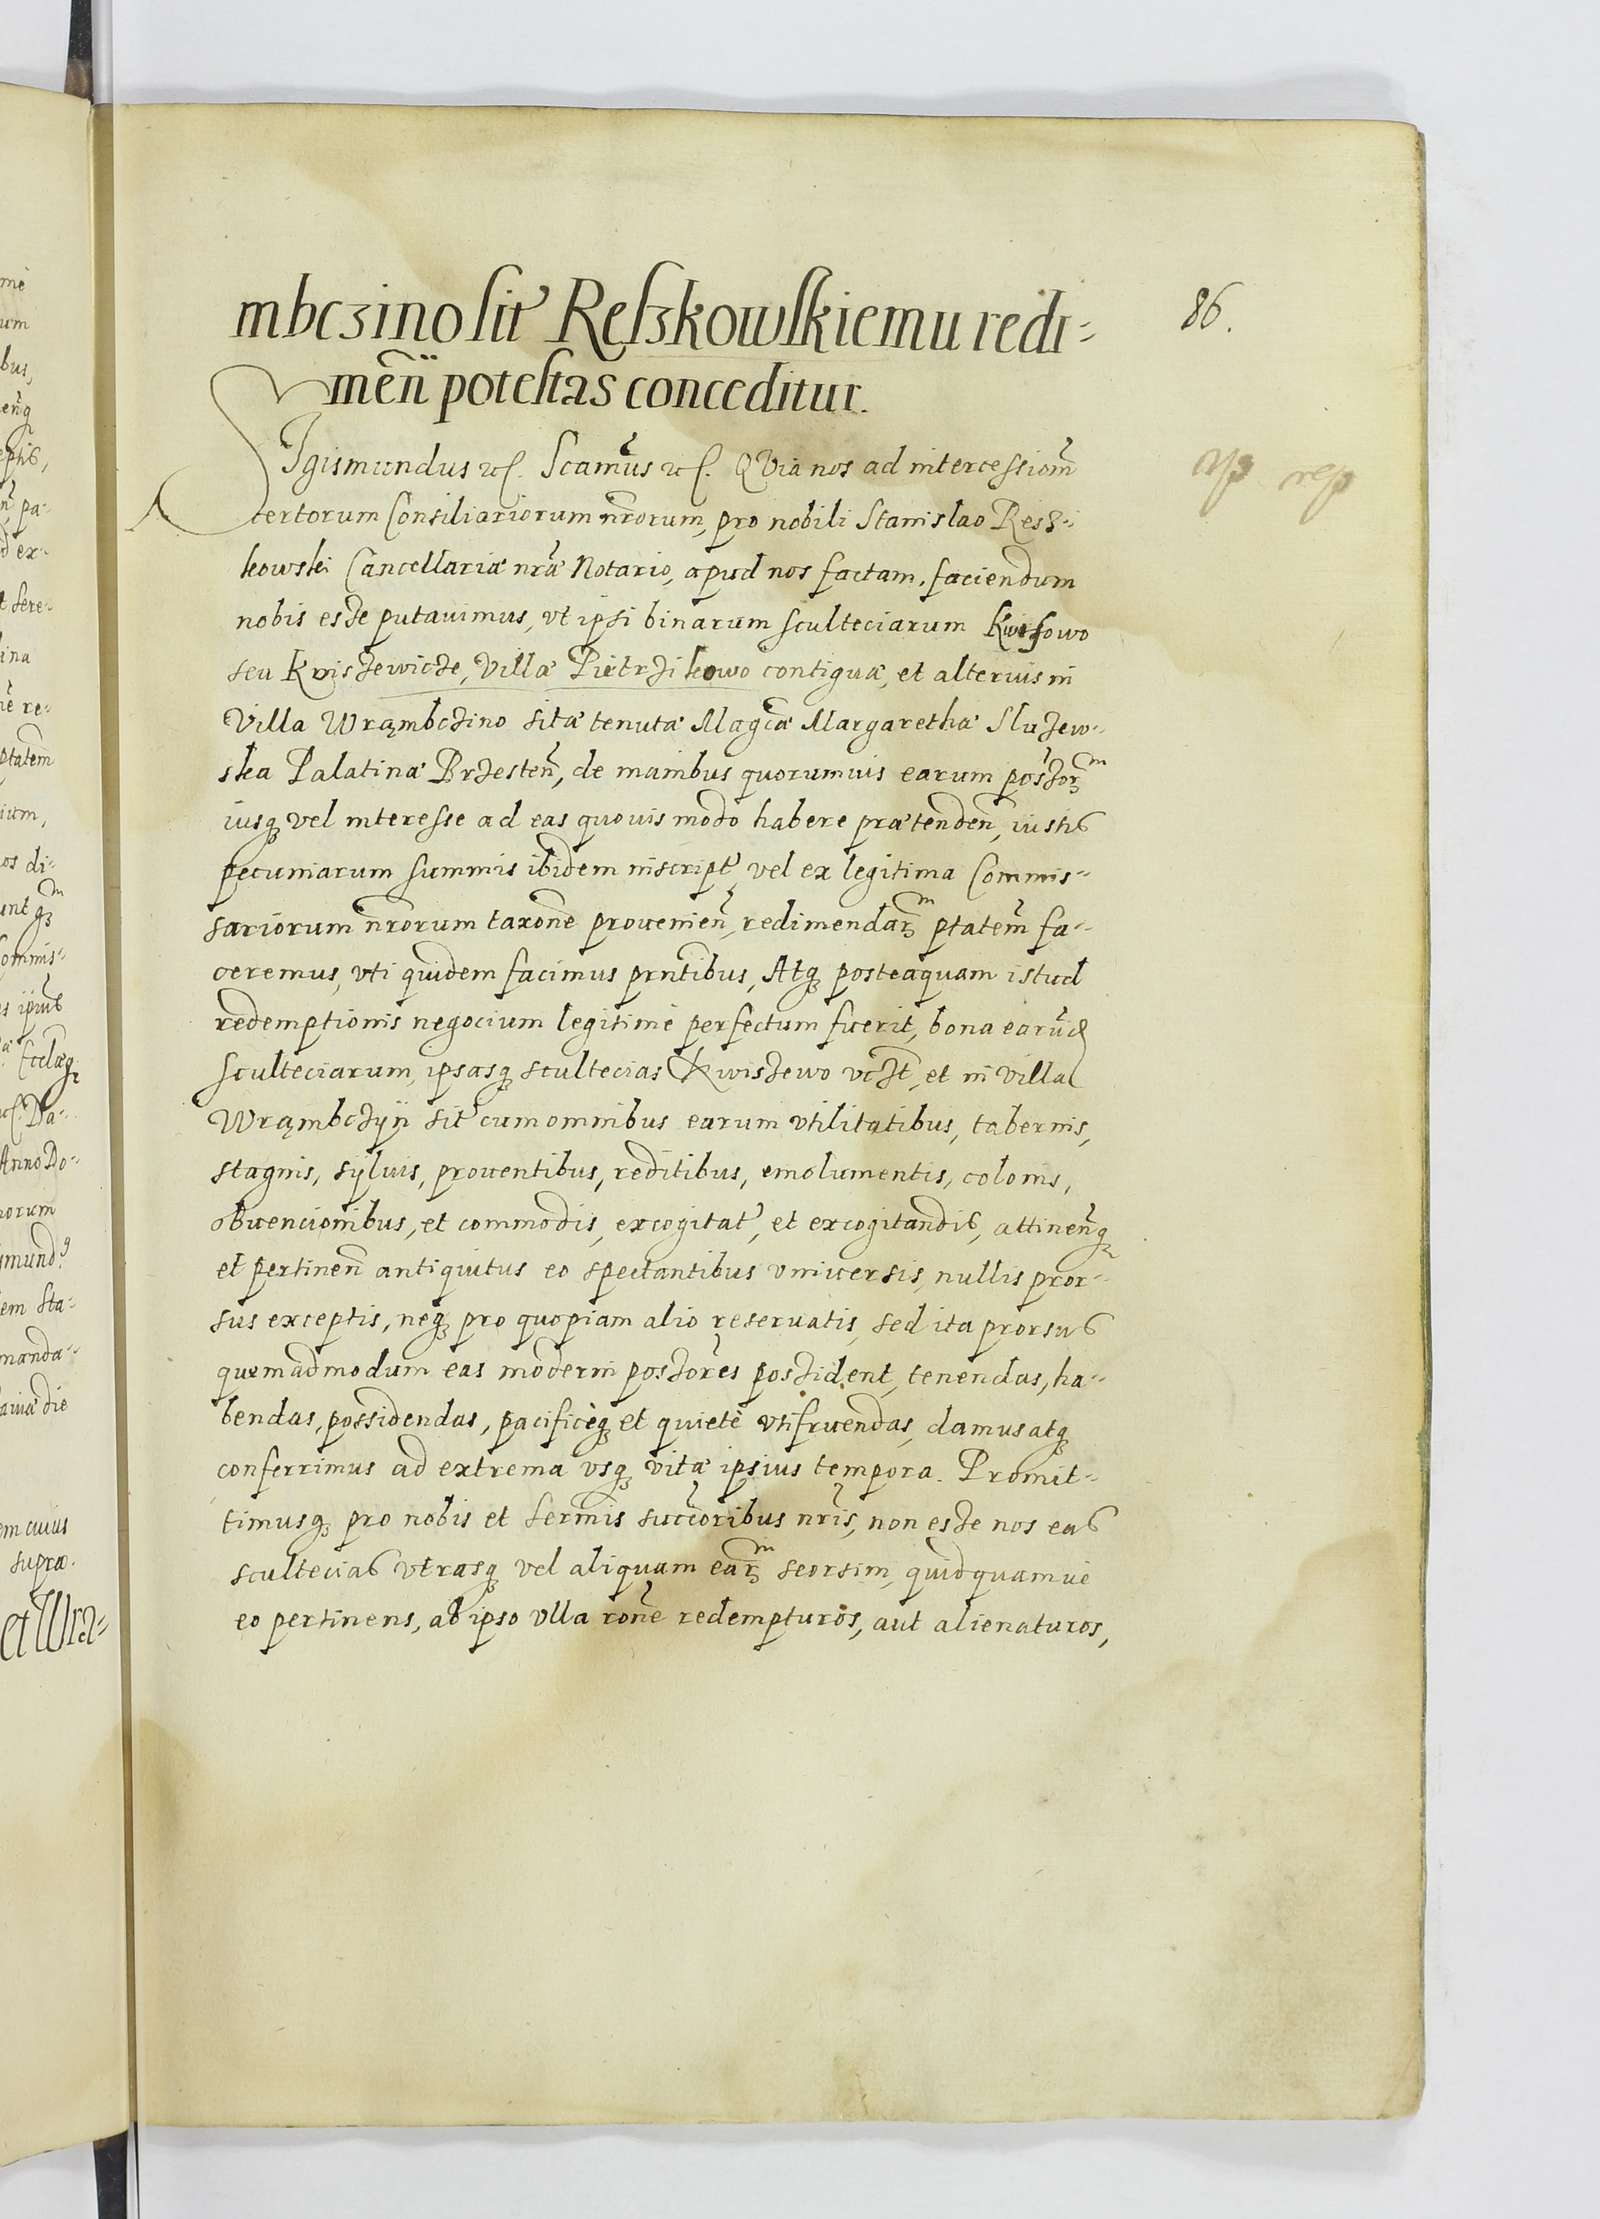 86.
mbczino sit Reszkowskiemu redi-
men̄ potestas conceditur.
SIgismundus etc. Scamus etc. QVia nos ad intercessiom̄
certorum Consiliariorum nr̄orum, pro nobili Stanislao Resz-
kowski Cancellariæ nr̄æ Notario, apud nos factam, faciendum
nobis esse putauimus, vt ipsi binarum sculteciarum
seu Kwiszewicze, Villæ Pietrzikowo contiguæ, et alterius in
Villa Wrąmbczino sitæ tenutæ Magcæ Margarethæ Sluzew-
ska Palatinæ Brzesten̄, de manibus quorumuis earum possor̄ꝫ
iusqꝫ vel interesse ad eas quouis modo habere prætenden̄, iustis
pecuniarum summis ibidem inscript, vel ex legitima Commis-
sariorum nr̄orum taxone prouenien̄, redimendarꝫ ptatem̄ fa-
ceremus, vti quidem facimus prn̄tibus, Atqꝫ posteaquam istud
redemptionis negocium legitimè perfectum fuerit, bona earūd
Sculteciarum, ipsasqꝫ scultecias Kwiszewo vczt, et in villa
Wrąmbczyn sit cum omnibus earum vtilitatibus, tabernis,
stagnis, sÿluis, prouentibus, reditibus, emolumentis, colonis,
obuencionibus, et commodis, excogitat, et excogitandis, attinen̄qꝫ
et pertinen̄ antiquitus eo spectantibus vniuersis, nullis pror-
sus exceptis, neqꝫ pro quopiam alio reseruatis, sed ita prorsus
quemadmodum eas moderni possores possident, tenendas, ha-
bendas, possidendas, pacificèqꝫ et quietè vtifruendas, damus atqꝫ
conferrimus ad extrema vsqꝫ vitæ ipsius tempora. Promit-
timusqꝫ pro nobis et Sermis succoribus nr̄is, non esse nos eas
scultecias vtrasqꝫ vel aliquam earꝫ seorsim, quidquamue
eo pertinens, ab ipso vlla rone redempturos, aut alienaturos,